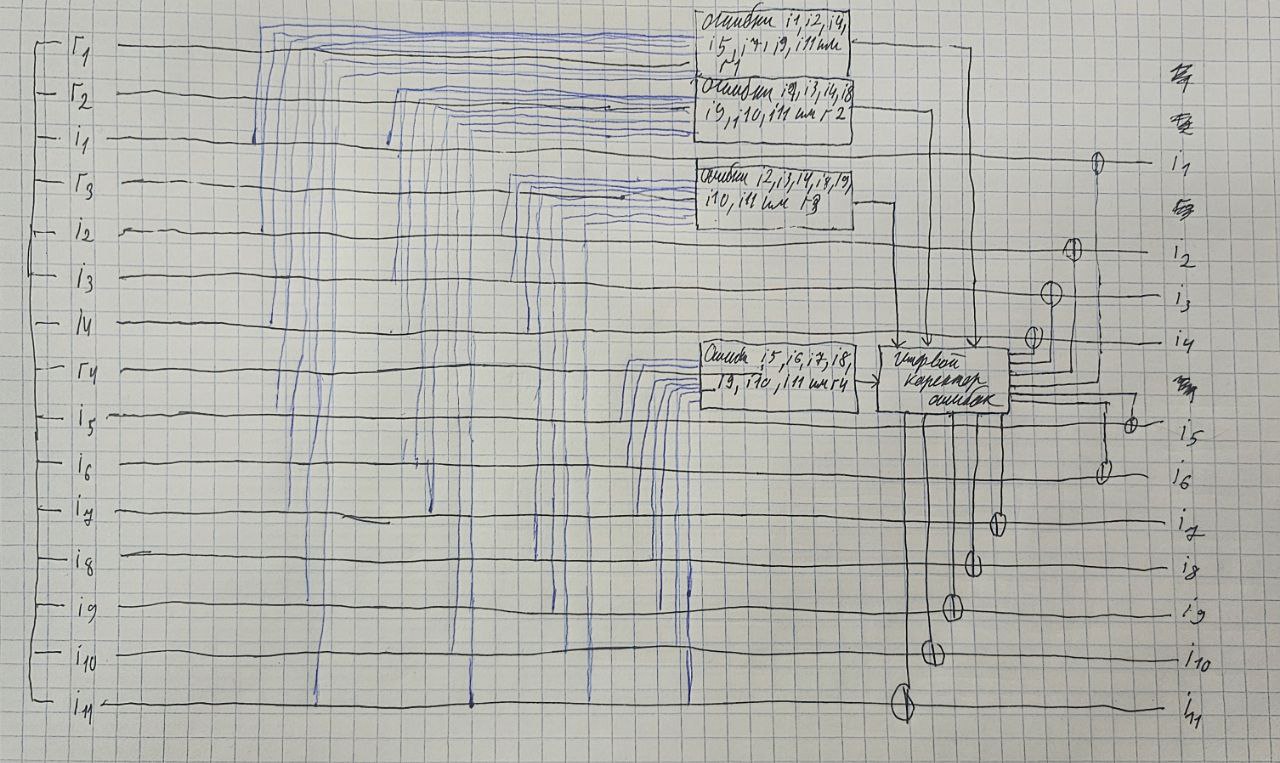 r1
r2
i1
r3
i2
i3
i4
r4
i5
i6
i7
i8
i9
i10
i11
Ошибки i1, i2, i4,
i5, i7, i9, i11 или
r1
Ошибки
i9, i10, i11 или r2
Ошибки i2, i3, i4, i8, i9,
i10, i11 или r3
Ошибки i5, i6, i7, i8,
i9, i10, i11 или r4
ошибок
i1
i2
i3
i4
i5
i6
i7
i8
i9
i10
i11